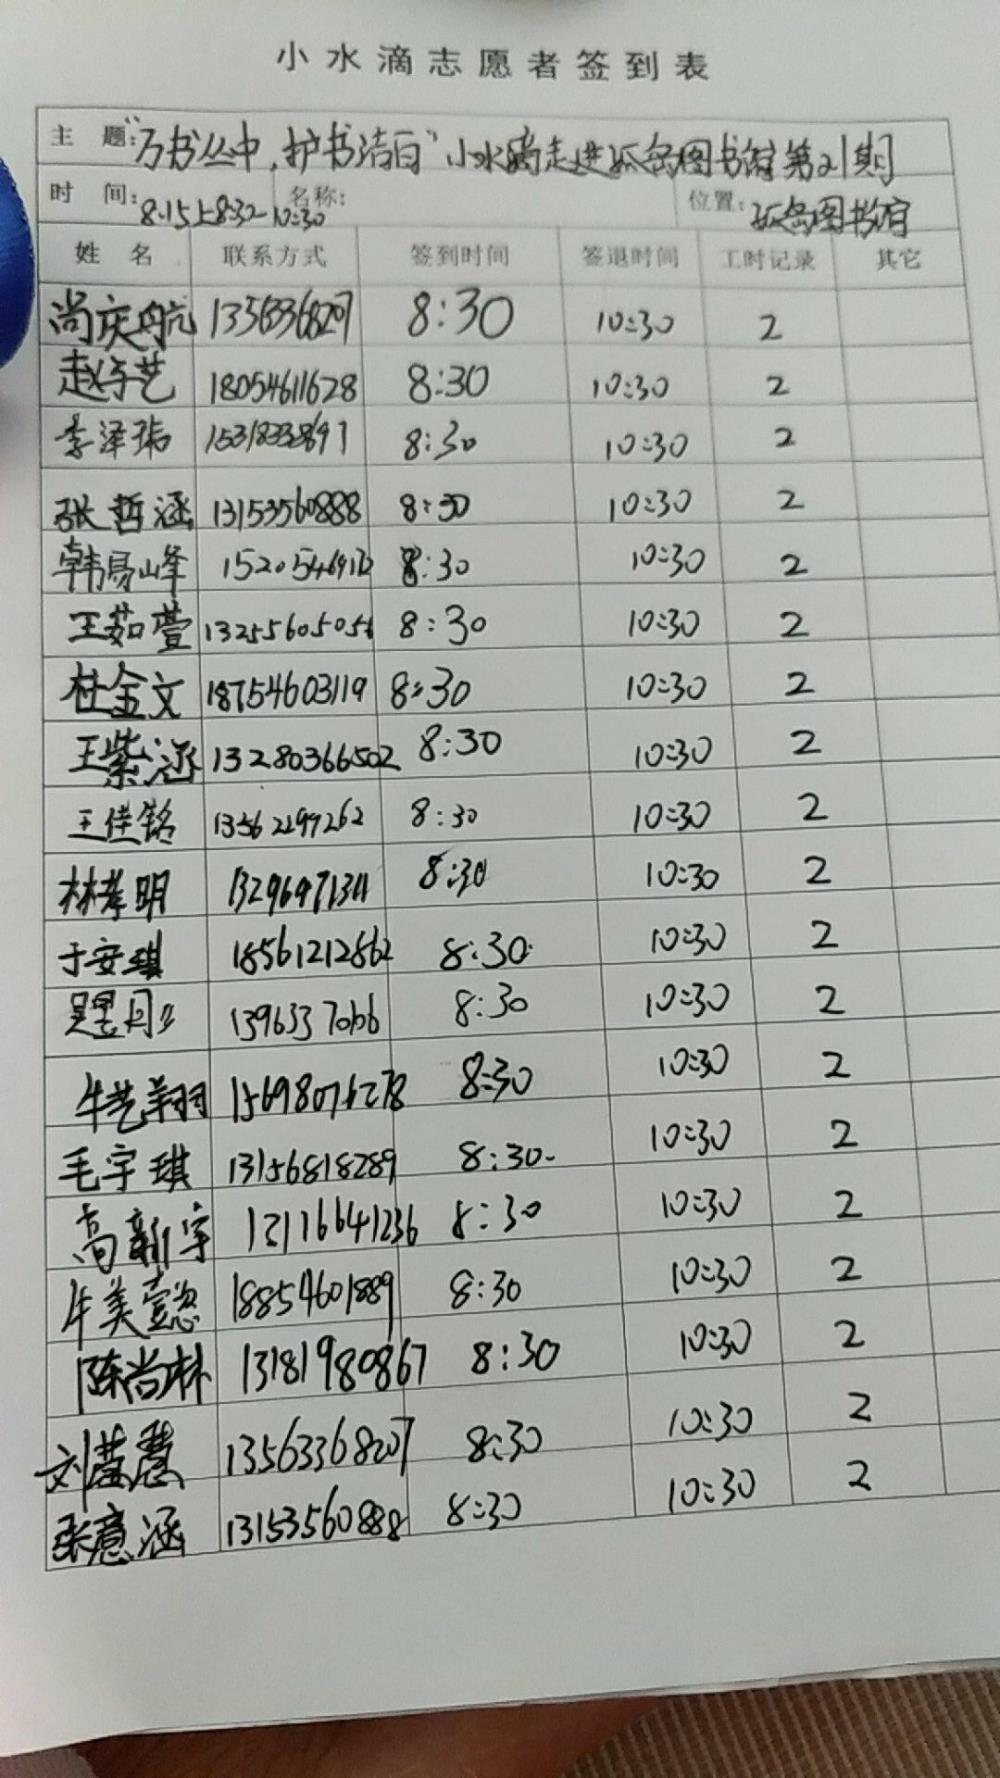 小水滴志愿者签到表
主 题:"万书丛中,护书洁白"小水滴走进孤岛图书馆第21期
时 间:8.15上8:30-10:30 名称: 位置:孤岛图书馆
姓 名 联系方式 签到时间 签退时间 工时记录 其它
尚庆航 13563368207 8:30 10:30 2
赵宇艺 18054611628 8:30 10:30 2
李泽瑞 8:30 10:30 2
张哲涵 13153560888 8:30 10:30 2
韩易峰 8:30 10:30 2
王茹萱 13255605056 8:30 10:30 2
杜金文 18754603119 8:30 10:30 2
王紫涵 13280366502 8:30 10:30 2
王佳铭 13562299262 8:30 10:30 2
林孝明 8:30 10:30 2
于安琪 18561212862 8:30 10:30 2
8:30 10:30 2
牛艺翔 15698076278 8:30 10:30 2
毛宇琪 13156818289 8:30 10:30 2
高新宇 8:30 10:30 2
牛美懿 18854601889 8:30 10:30 2
陈尚林 13181980867 8:30 10:30 2
刘莹慧 13563368207 8:30 10:30 2
张意涵 13153560888 8:30 10:30 2